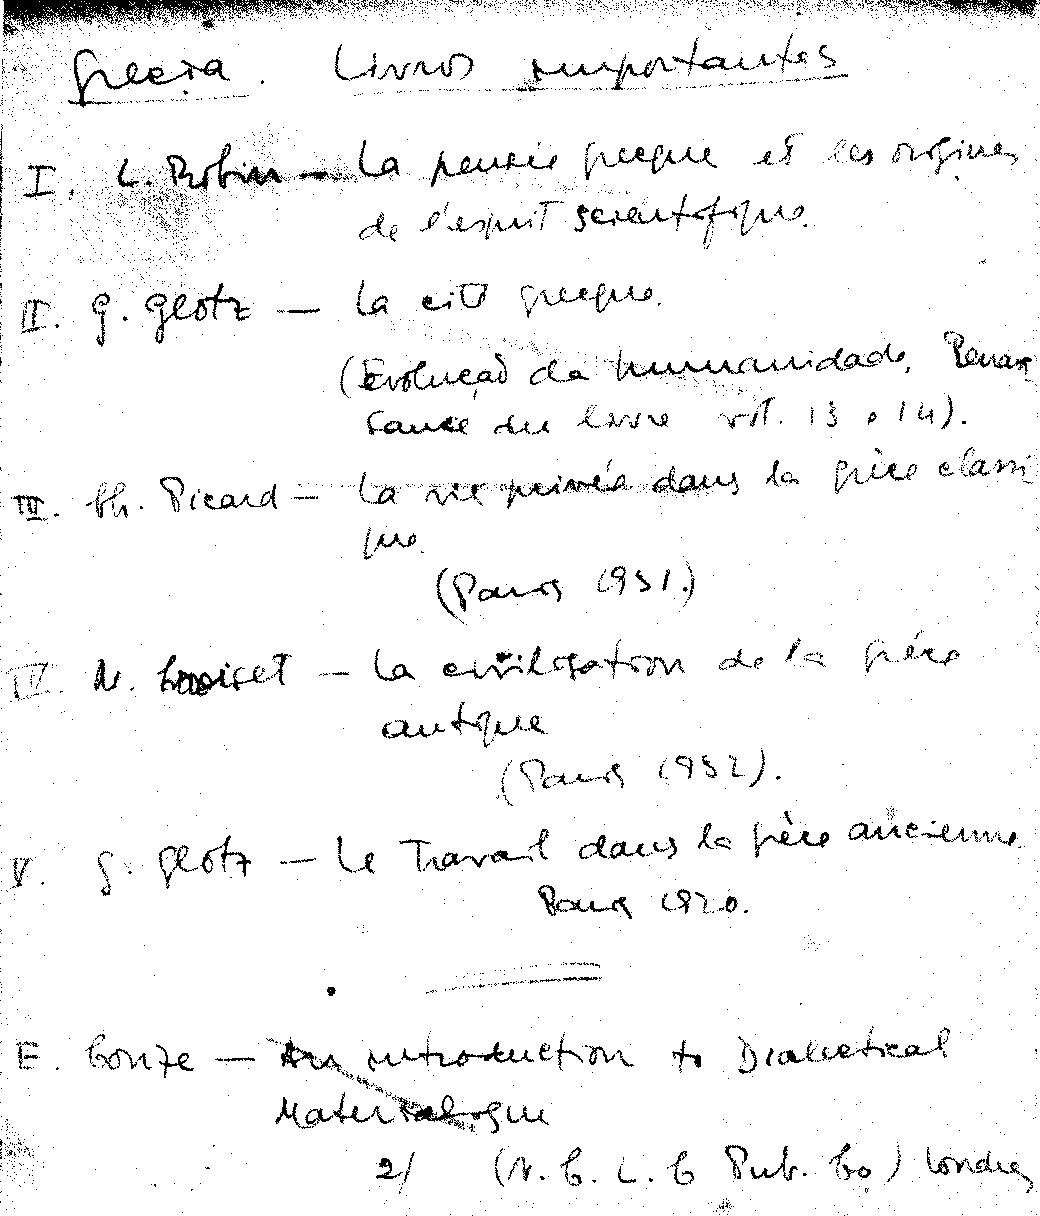 Grecia. Livros importantes
I. L. Robin — La pensée grecque et les origines
de l'esprit scientifique.
II. G. Glotz — La cité grecque.
(Evolução da humanidade, Renais
sance du livre vol. 13 e 14).
III. Ch. Picard — La vie privée dans la Grèce classi
que
(Paris 1931.)
IV. M. Croiset — La civilisation de la Grèce
antique
(Paris 1932).
V. G. Glotz — Le Travail dans la Grèce ancienne
Paris 1920.
E. Conze — An introduction to Dialectical
2/ (N. C. L. C Pub. Co) Londres